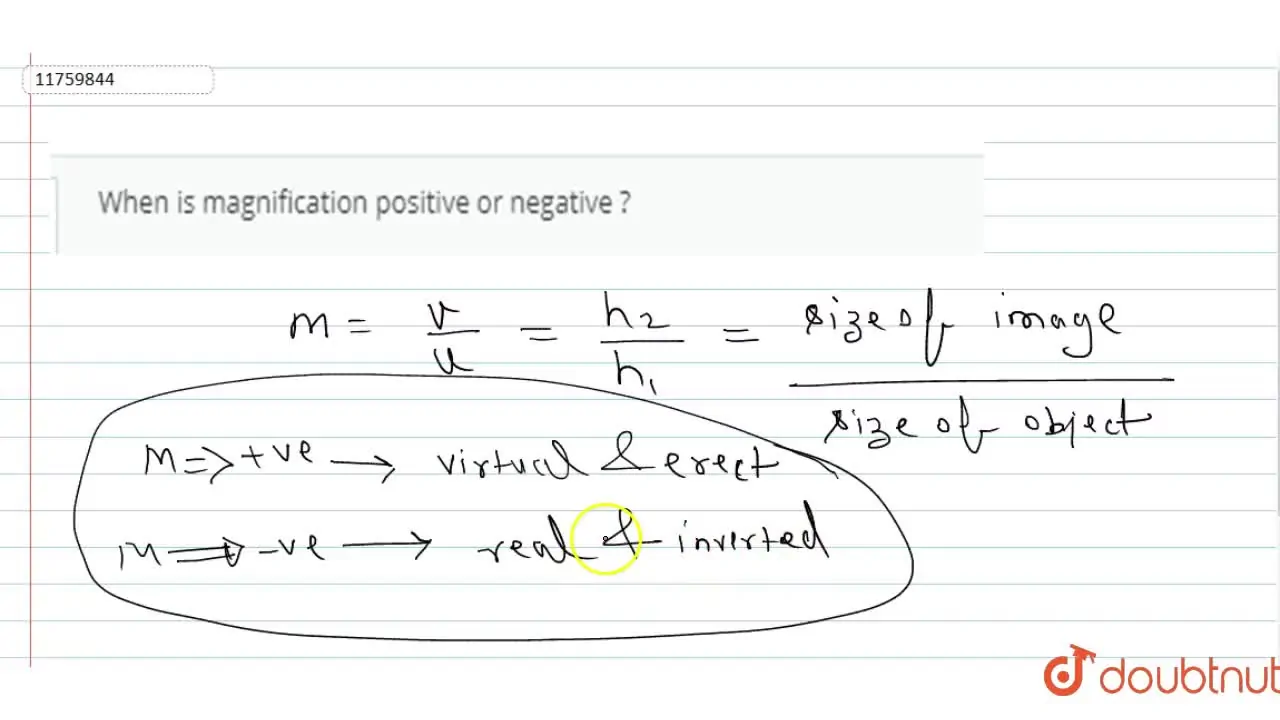 11759844
When is magnification positive or negative ?
m = v/u = h2/h1 = size of image / size of object
m => +ve → virtual & erect
m => -ve → real & inverted
doubtnut